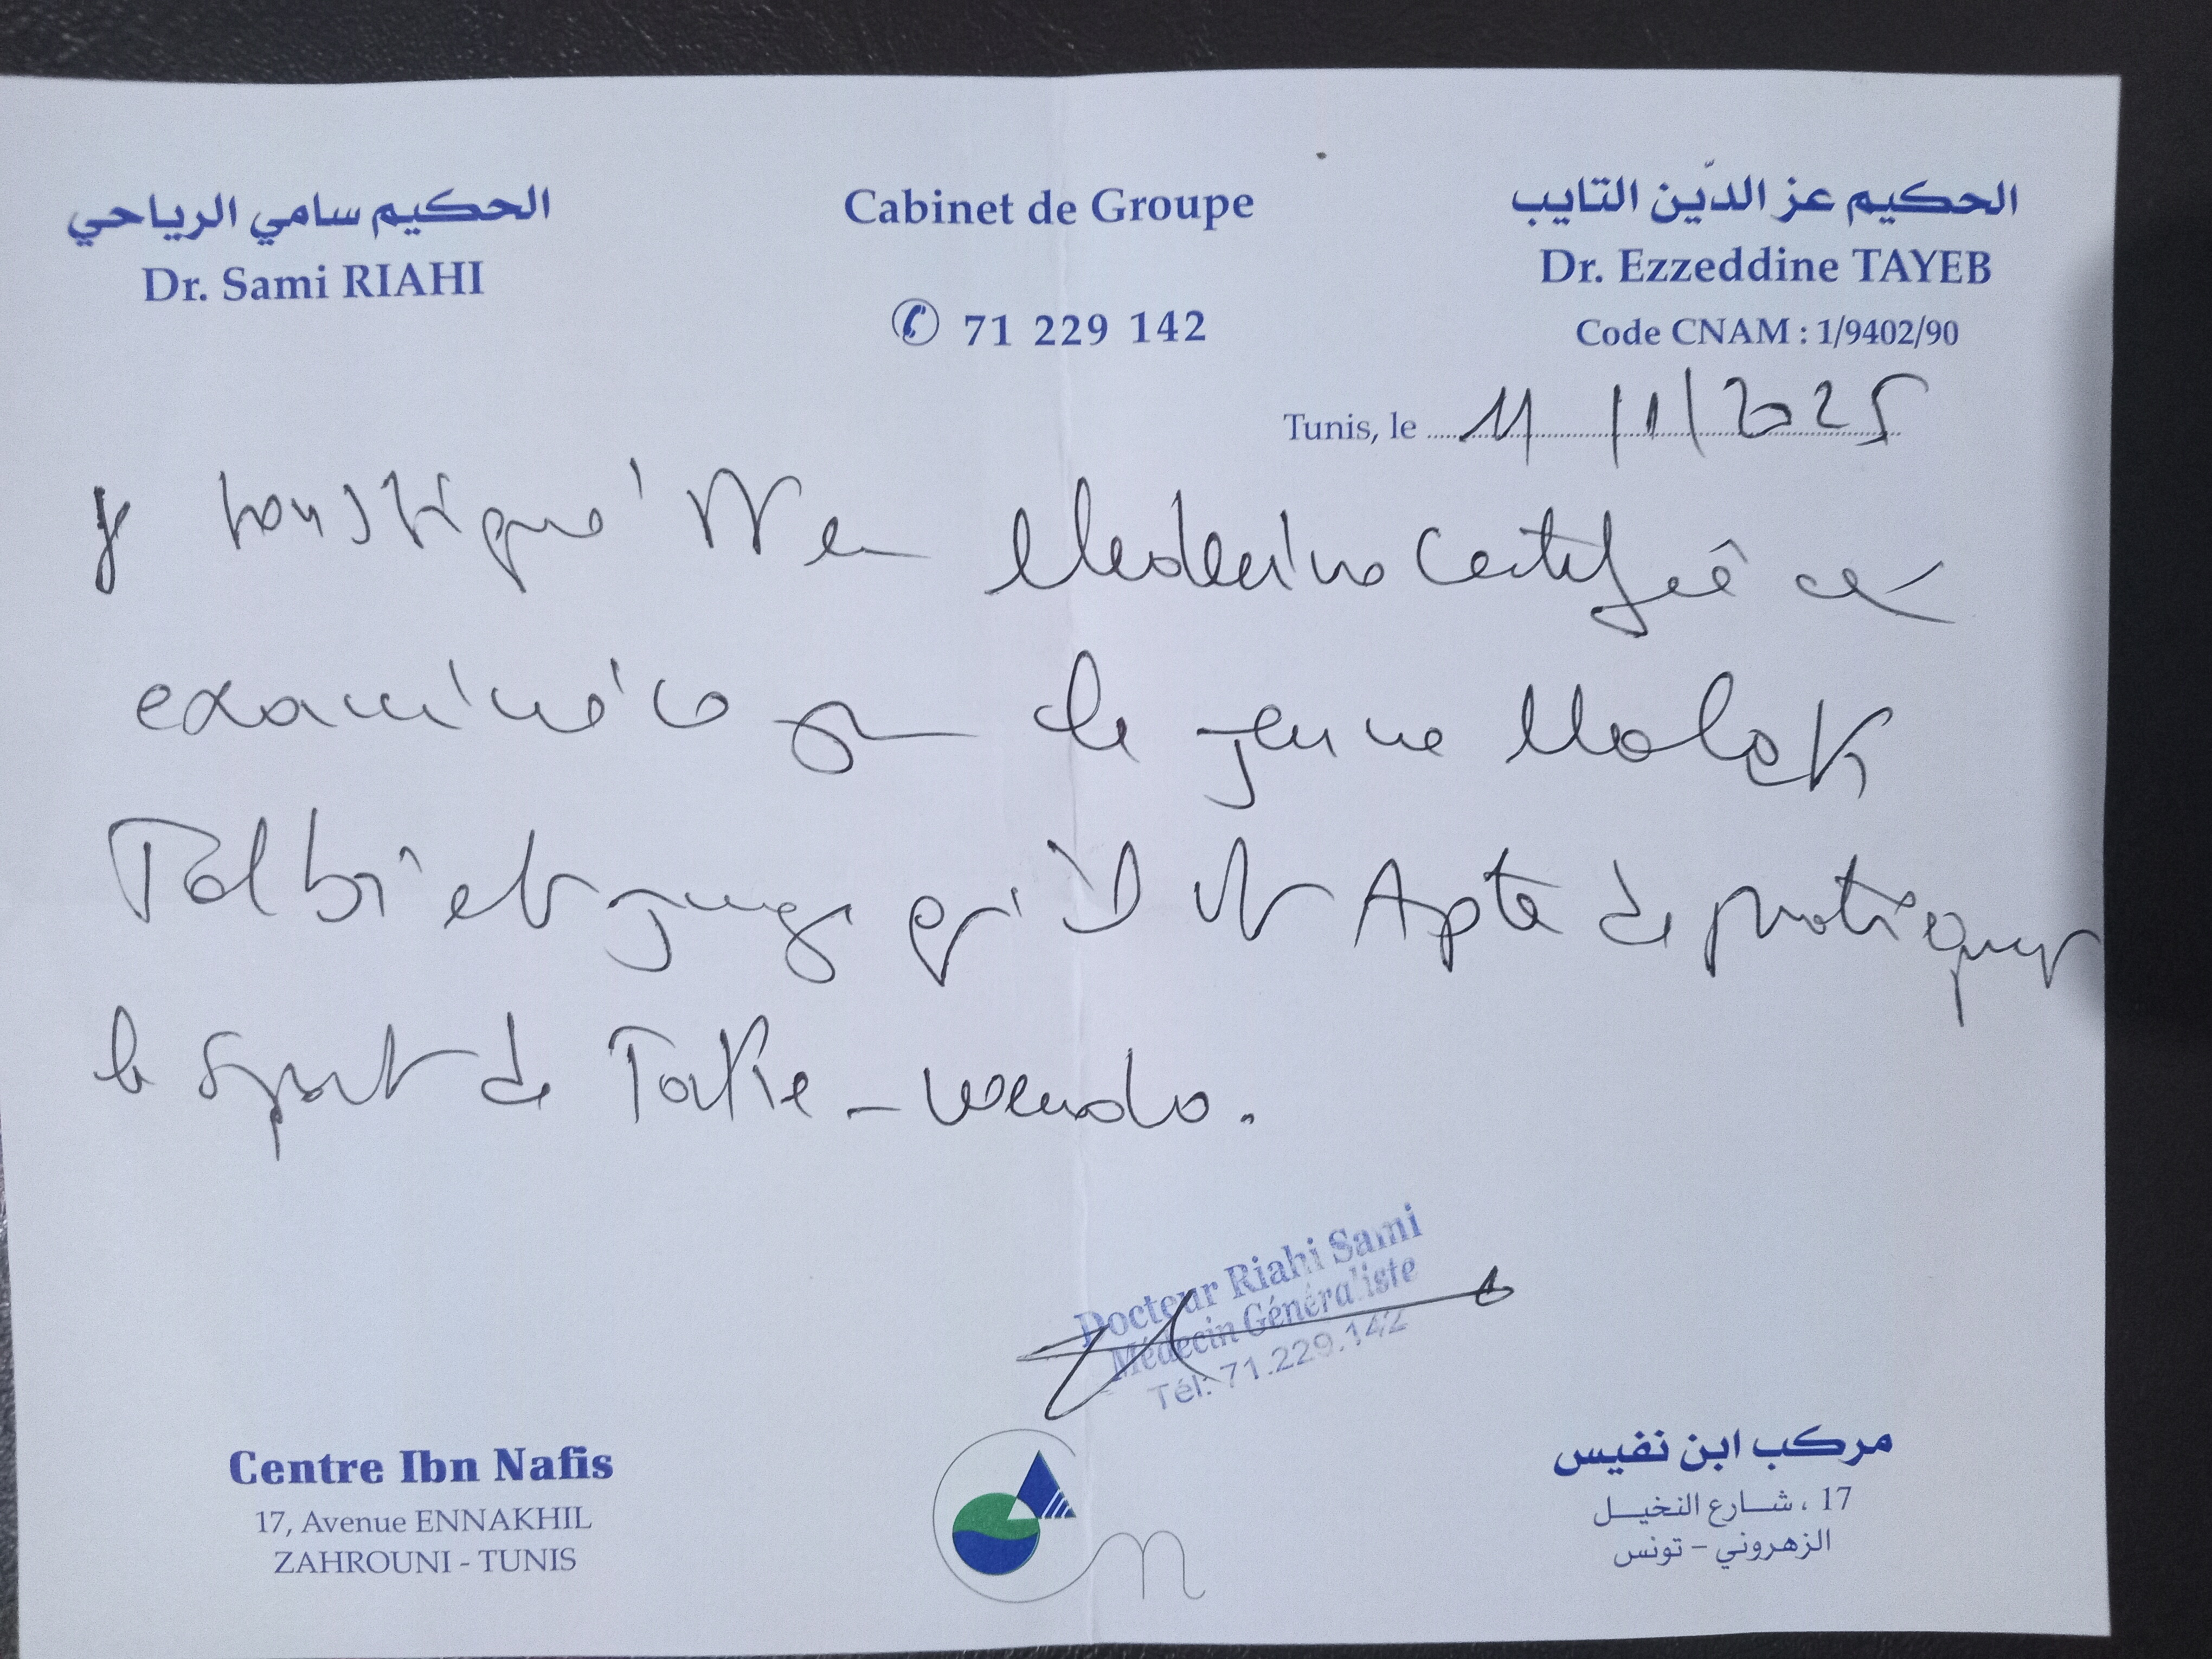 الحكيم سامي الرياحي
Dr. Sami RIAHI
Cabinet de Groupe
71 229 142
الحكيم عز الدّين التايب
Dr. Ezzeddine TAYEB
Code CNAM : 1/9402/90
Tunis, le 11/1/2025
Je soussigné Dr en Medecine certifie avoir
examiné ce jour le jeune Malek
Talbi et juge qu'il est Apte de pratiquer
le sport de Taekwondo.
Docteur Riahi Sami
Médecin Généraliste
Tél: 71.229.142
Centre Ibn Nafis
17, Avenue ENNAKHIL
ZAHROUNI - TUNIS
مركب ابن نفيس
17 ، شارع النخيل
الزهروني - تونس